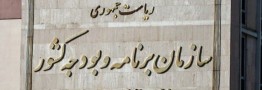 ریاست جمهوری
سازمان برنامه و بودجه کشور